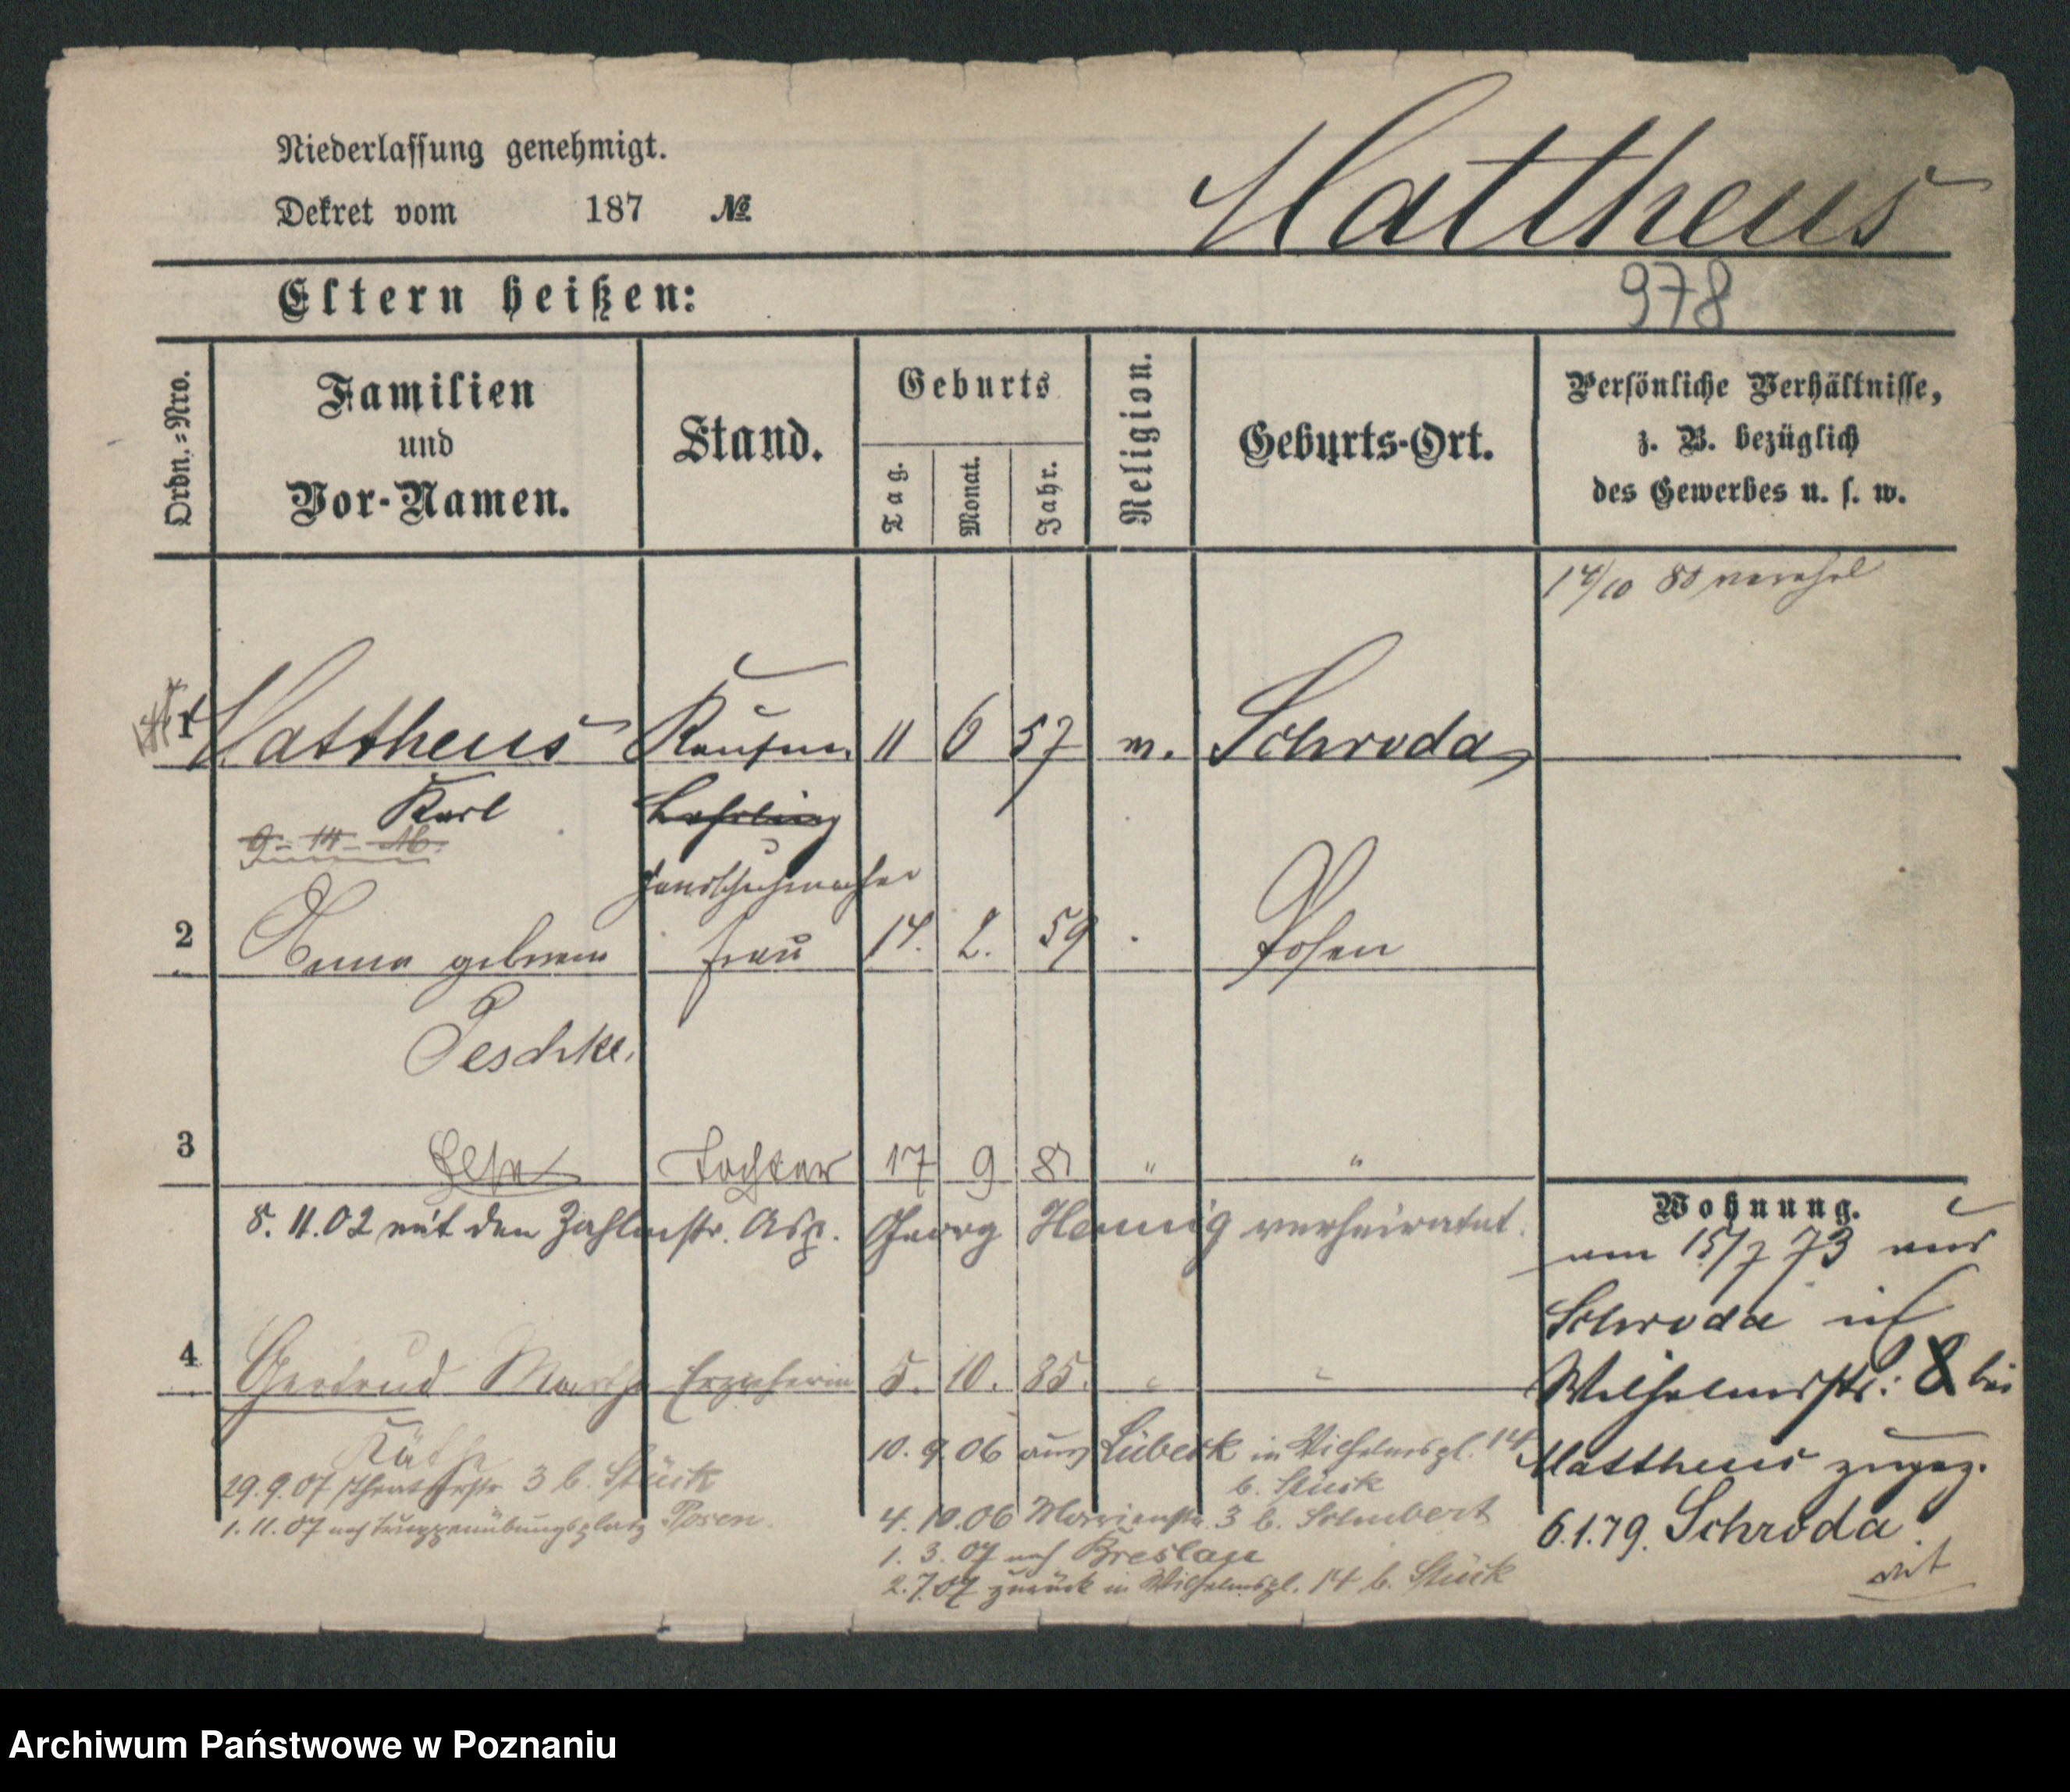 Niederlassung genehmigt.
Dekret vom 187 №
Mattheus
978
Eltern heißen:
Ordn.=Nro.
Familien
und
Vor-Namen.
Stand.
Geburts
Tag.
Monat.
Jahr.
Religion.
Geburts-Ort.
Persönliche Verhältnisse,
z. B. bezüglich
des Gewerbes u. s. w.
14/10 80 verehel
1 Mattheus Kaufm. 11 6 57 ev. Schroda
Karl Lehrling
9. 14. 16.
Handschuhmacher
2 Anna geborene Frau 14. 2. 59 Posen
Peschke.
3 Tochter 17 9 81 " "
8.11.02 mit dem Zahlmstr. Asp. Georg Hennig verheiratet.
4 Gertrud Martha Erzieherin 5. 10. 85.
Käthe
29.9.07 Theaterstr 3 b. Stück
1.11.07 nach Truppenübungsplatz Posen.
10.9.06 aus Lübeck in Wilhelmspl. 14
b. Stück
4.10.06 3 b. Schubert
1.3.07 nach Breslau
2.7.07 zurück in Wilhelmspl. 14 b. Stück
Wohnung.
am 15/7 73 aus
Schroda in
Wilhelmsstr: 8 bei
Mattheus zugez.
6.1.79. Schroda.
Archiwum Państwowe w Poznaniu